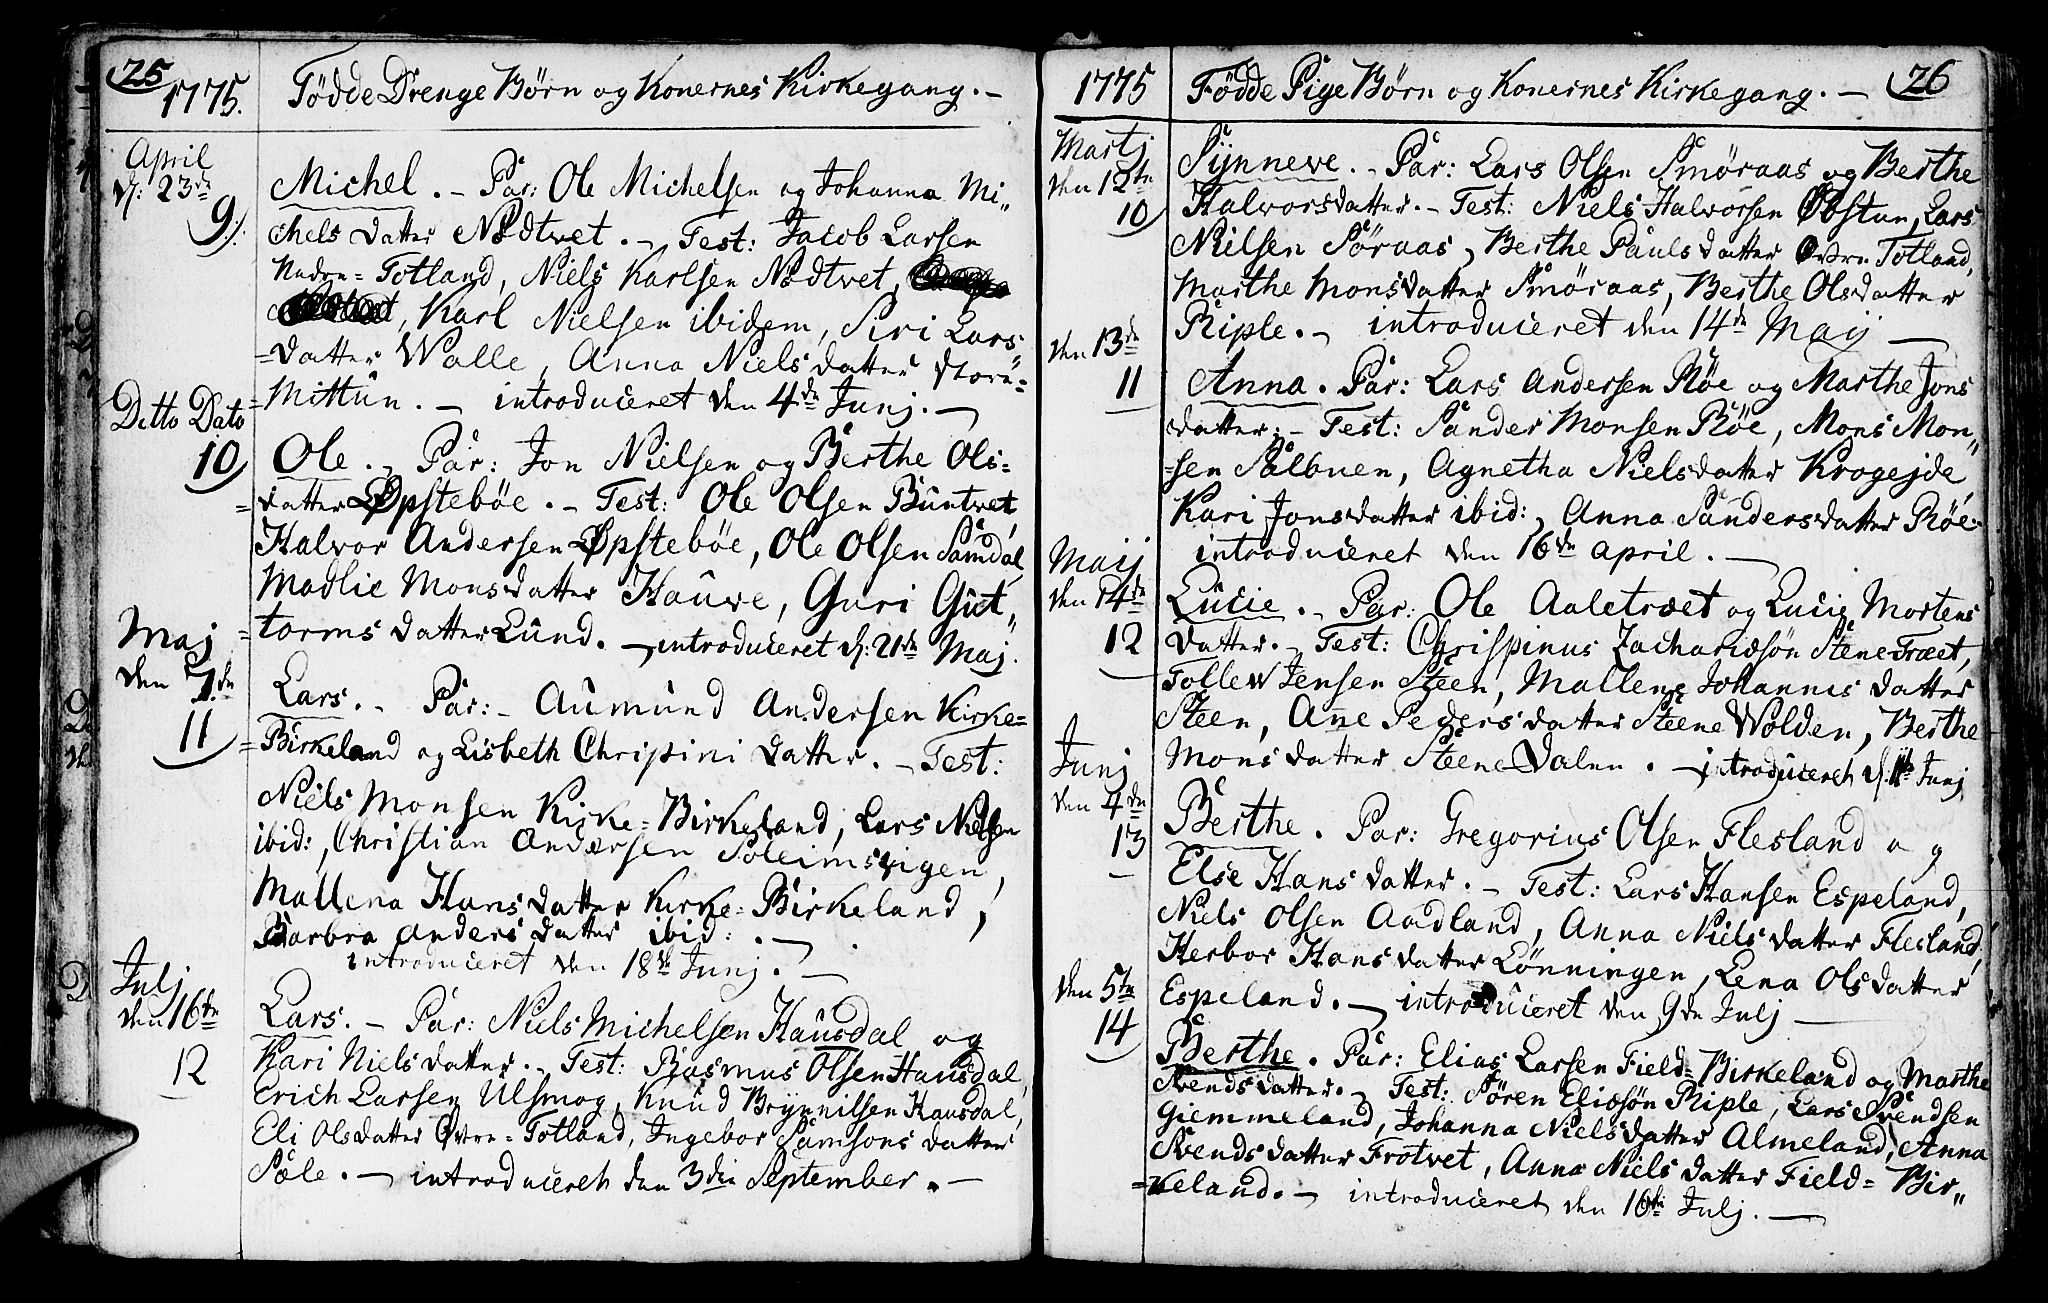 25
1775. Födde Drenge Börn og Konernes Kirkegang. -
April
d: 23de
9
Michel. - Par: Ole Michelsen og Johanna Mi„
chels datter Nödtvet. - Test: Jacob Larsen
Nedre= Totland, Niels Karlsen Nödtvet,
Karl Nielsen ibidem, Siri Lars„
=datter Walle, Anna Nielsdatter Store=
Mittün. - introduceret den 4de Junj. -
Ditto Dato
10
Ole. - Par: Jon Nielsen og Berthe Ols=
=datter Øpsteböe. - Test: Ole Olsen Büntvet,
Halvor Andersen Øpsteböe, Ole Olsen Samdal,
Madlie Monsdatter Haüve, Guri Gut„
=torms datter Lünd. - introduceret d: 21de Maj.
Maj
den 7de
11
Lars. - Par: - Aümünd Andersen Kirke=
=Birkeland og Lisbeth Chrispini datter. - Test:
Niels Monsen Kirke=Birkeland, Lars Nielsen
ibid:, Christian Andersen Soleimsvigen,
Mallena Hans datter Kirke=Birkeland,
Barbra Anders datter ibid: . -
introduceret den 18de Junj. -
Julj
den 16te
12
Lars. - Par: Niels Michelsen Haüsdal og
Kari Niels datter. - Test: Rasmus Olsen Hausdal,
Erich Larsen Ülsmog, Knüd Brynnilsen Hausdal,
Eli Olsdatter Øvre=Totland, Ingebor Samsons datter
Sæle. - introduceret den 3die September. -
1775 Födde Pige Börn og Konernes Kirkegang. - 26
Martj
den 12te
10
Sÿnneve. - Par: Lars Olsen Smöraas og Berthe
Halvorsdatter. - Test: Niels Halvorsen Øbstun, Lars
Nielsen Söraas, Berthe Paülsdatter Øvre Totland,
Marthe Monsdatter Smöraas, Berthe Olsdatter
Riple. - introduceret den 14de Maij -
den 13de
11
Anna. Par: Lars Andersen Röe og Marthe Jons
datter. - Test: Sander Monsen Röe, Mons Mon„
=sen Sælbuen, Agnetha Nielsdatter Krogejde
Kari Jonsdatter ibid:, Anna Sandersdatter Röe.
introduceret den 16de April. -
Maij
den 14de
12
Lücie. - Par: Ole Aaletræet og Lucie Mortens
datter. - Test: Chrispinus Zachariæsön SteneTræet,
Tollew Jensen Steen, Mallene Johannis datter
Steen, Ane Peders datter Steene Wolden, Berthe
Mons datter Steene Dalen. - introduceret d. 11te Junj
Junj
den 4de
13
Berthe. Par: Gregorius Olsen Flesland og
Else Hans datter. - Test: Lars Hansen Espeland,
Niels Olsen Aadland, Anna Niels datter Flesland,
Herbor Hans datter Lönningen, Lena Olsdatter
Espeland. - introduceret den 9de Julj -
den 5te
14
Berthe. Par: Elias Larsen Field=Birkeland og Marthe
Svends datter. - Test: Sören Eliæsön Riple, Lars Svendsen
Giemmeland, Johanna Niels datter Almeland, Anna
Svends datter Frotvet, Anna Niels datter Field=Bir„
=keland. - introduceret den 16de Julj. -